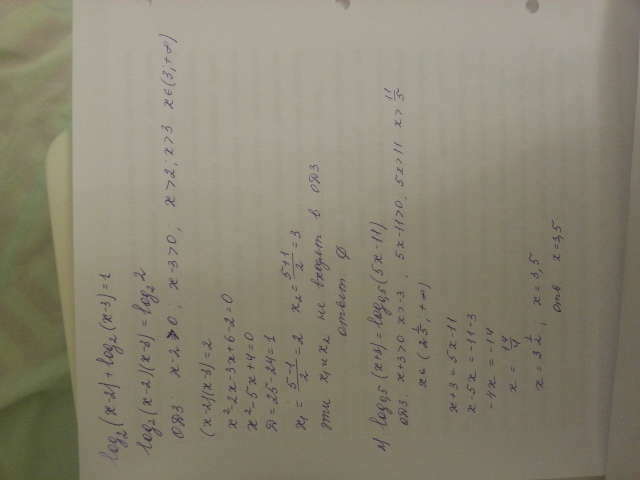 log₂(x-2)+log₂(x-3)=1
log₂(x-2)(x-3)=log₂2
ОДЗ: x-2>0; x-3>0; x>2; x>3 x∈(3;+∞)
(x-2)(x-3)=2
x²-2x-3x+6-2=0
x²-5x+4=0
D=25-24=1
x₁=(5-1)/2=2 x₂=(5+1)/2=3
эти x₁ и x₂ не входят в ОДЗ
ответ ∅
log₀,₅(x+3)=log₀,₅(5x-11)
ОДЗ: x+3>0 x>-3; 5x-11>0; 5x>11 x>11/5
x∈(2 1/5;+∞)
x+3=5x-11
x-5x=-11-3
-4x=-14
x=14/4
x=3 1/2; x=3,5
Отв x=3,5